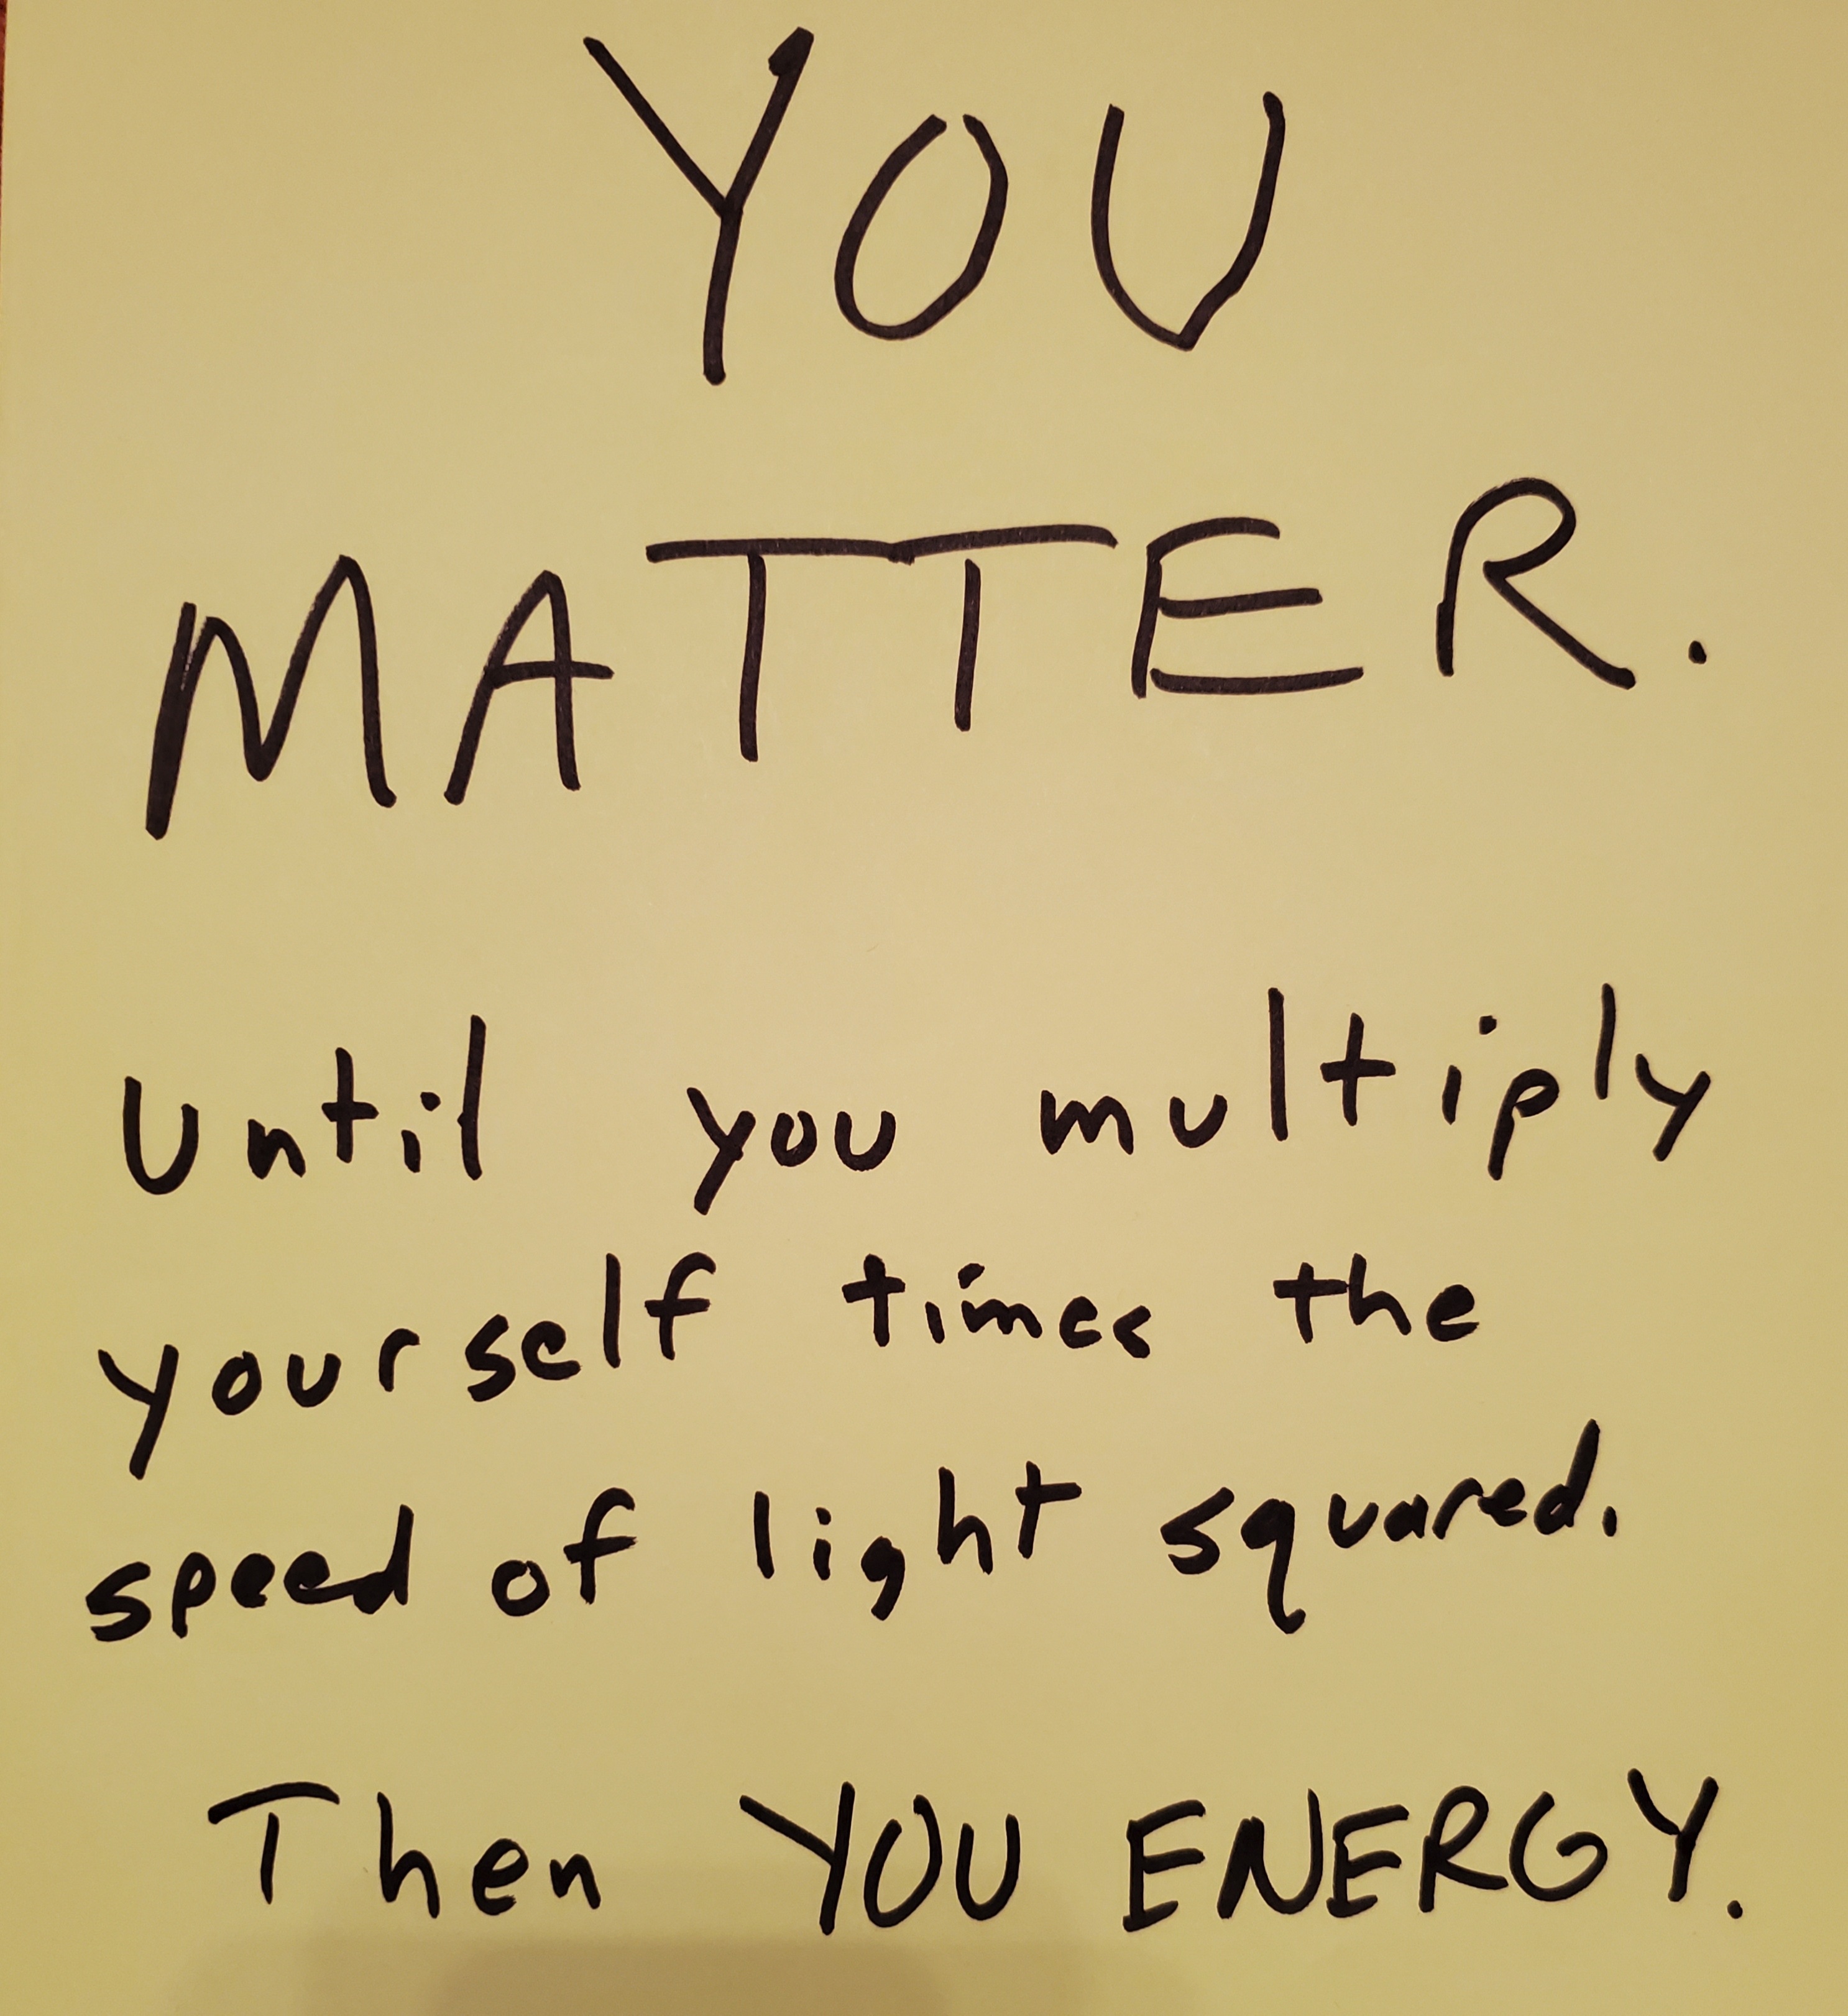 YOU
MATTER.
Until you multiply
yourself times the
speed of light squared.
Then YOU ENERGY.